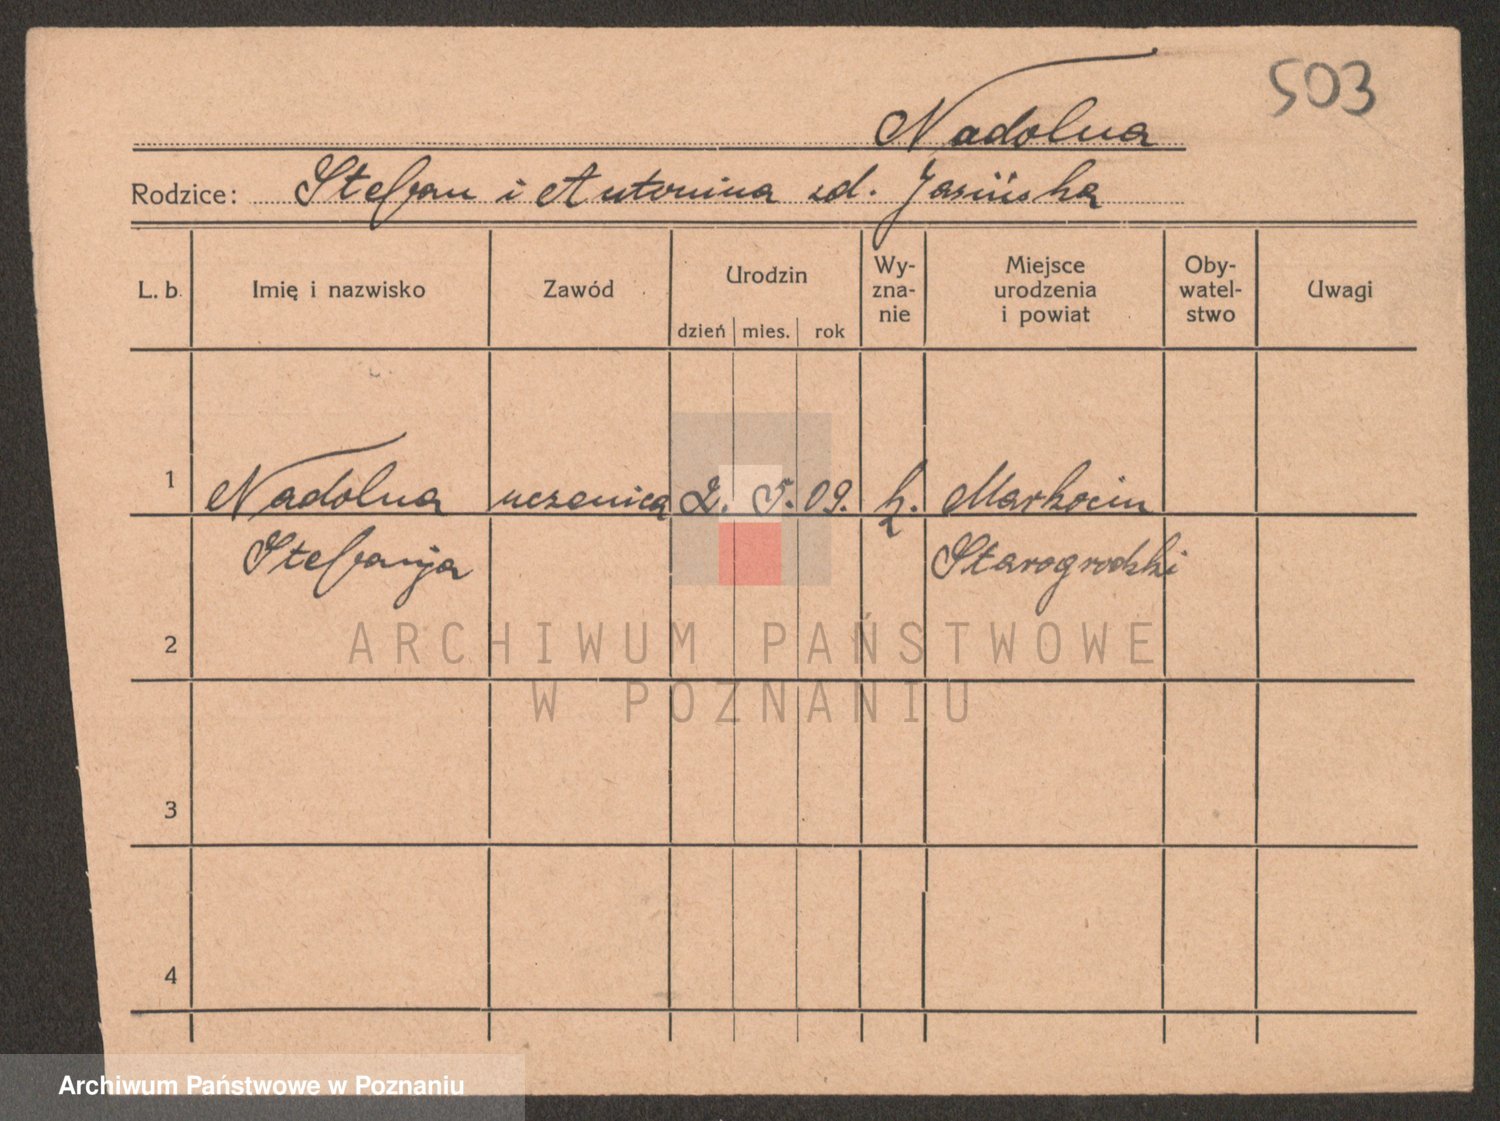 503
Nadolna
Rodzice: Stefan i Antonina zd. Jasińska
L. b. Imię i nazwisko Zawód Urodzin dzień mies. rok Wy-zna-nie Miejsce urodzenia i powiat Oby-watel-stwo Uwagi
1 Nadolna uczenica 2. 5. 09. k. Markocin
Stefanja Starogrodzki
2
ARCHIWUM PAŃSTWOWE
W POZNANIU
3
4
Archiwum Państwowe w Poznaniu